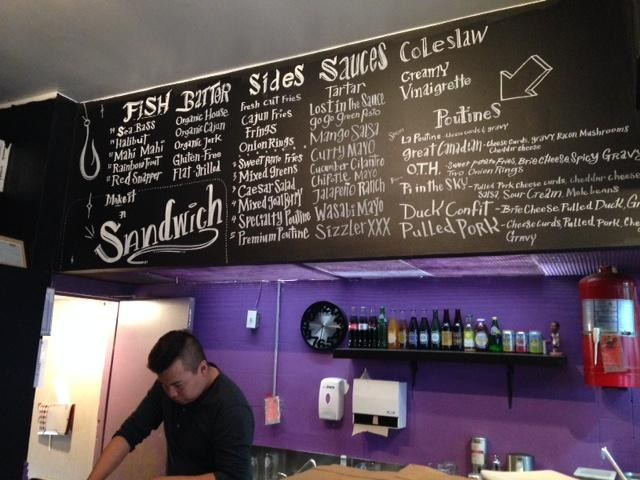 FISH
Sea Bass
Halibut
Mahi Mahi
Rainbow Trout
Red Snapper
Make it
a
Sandwich
BATTER
Organic House
Organic Cajun
Organic Jerk
Gluten-Free
Flat-Grilled
Sides
Fresh Cut Fries
Cajun Fries
Frings
Onion Rings
Sweet Potato Fries
Mixed greens
Caesar Salad
Mixed Goat Berry
Specialty Poutine
Premium Poutine
Sauces
Tartar
Lost in the Sauce
go go green Pesto
Mango Salsa
Curry Mayo
Cucumber Cilantro
Chipotle Mayo
Jalapeño Ranch
Wasabi Mayo
Sizzler XXX
Coleslaw
Creamy
Vinaigrette
Poutines
La Poutine - cheese curds & gravy
Great Canadian - cheese curds, gravy, Bacon Mushrooms
Cheddar cheese
O.T.H. - Sweet potato Fries, Brie Cheese, Spicy Gravy
Two Onion Rings
Pi in the SKY - Pulled Pork, cheese curds, cheddar-cheese
Salsa, Sour Cream
Duck Confit - Brie Cheese, Pulled Duck,
Pulled Pork - Cheese Curds, Pulled Pork,
Gravy